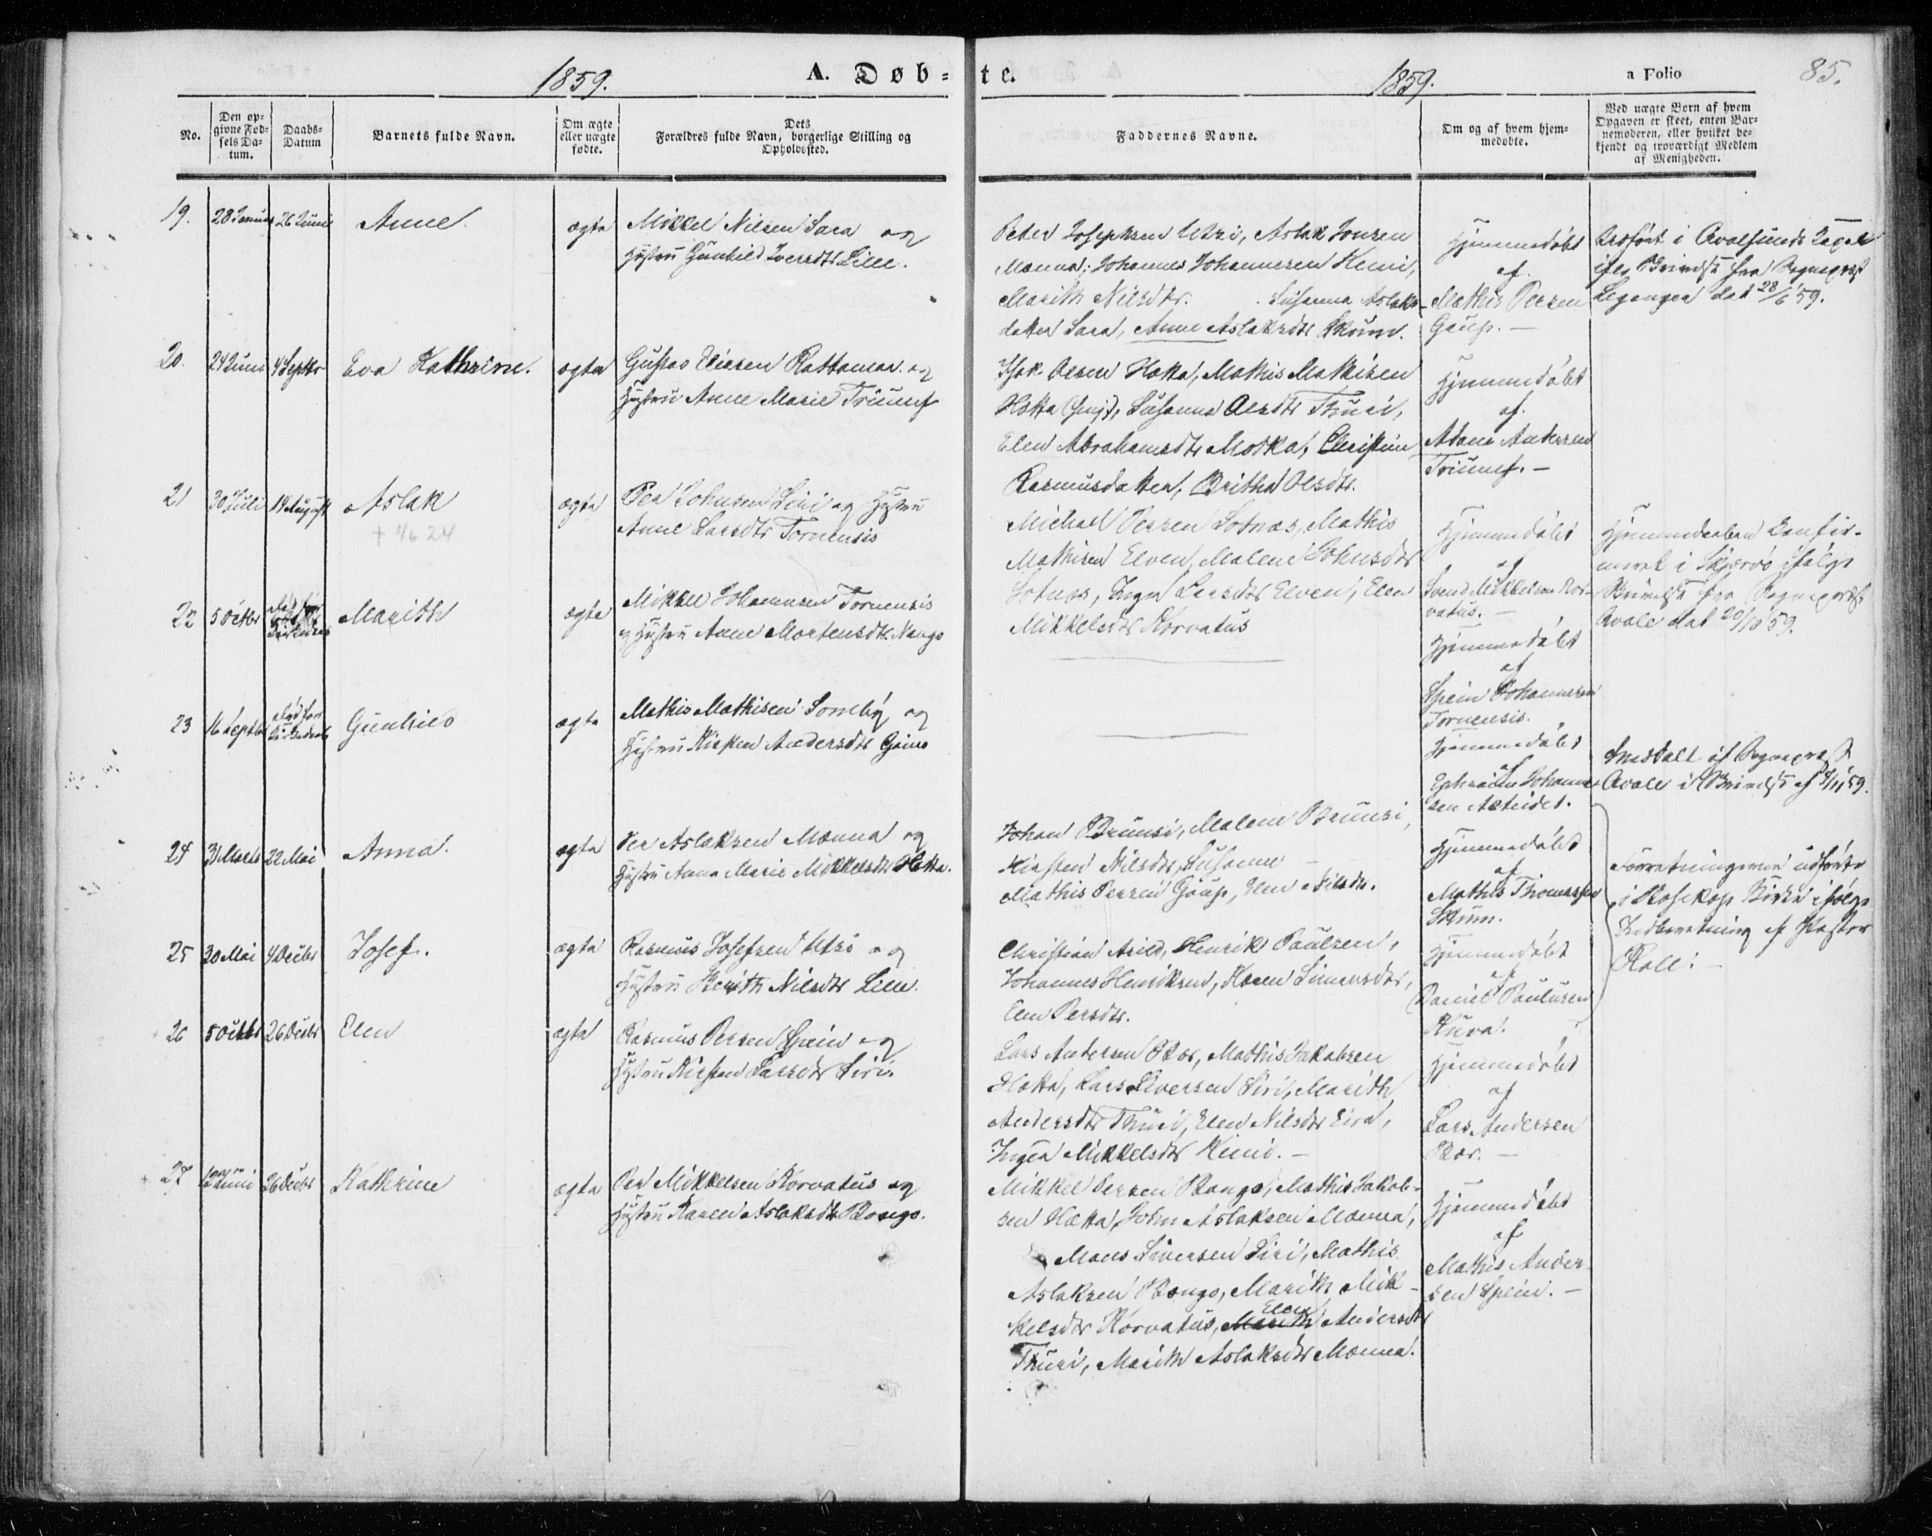 1859.
A. Døb-
te.
1859.
a Folio
85.
No.
Den op-
givne Fød-
sels Da-
tum.
Daabs-
Datum
Barnets fulde Navn.
Om ægte
eller uægte
fødte.
Dets
Forældres fulde Navn, borgerlige Stilling og
Opholdssted.
Faddernes Navne.
Om og af hvem hjem-
medøbte.
Ved uægte Børn af hvem
Opgaven er skeet, enten Bar-
nemoderen, eller hvilket be-
kjendt og troværdigt Medlem
af Menigheden.
19. 28 Januar 26 Juni Anne. ægte Mikkel Nilsen Sara og
Hustru Gunhild Iversdtr Lille.
Peder Josephsen Utzi, Aslak Jonsen
Mænna, Johannes Johannessen Kemi,
Marith Nilsdtr. Susanna Aslaks-
datter Sara, Anne Aslaksdtr Skum.
Hjemmedøbt
af
Mathis Persen
Gaup. —
i Qvalsunds
fra Sognepræst
dat 28/6 59.
20. 24 Juni 4 Septbr Eva Kathrine. ægte Gustav Eliesen Rattamar og
Hustru Anne Marie Triumf
Isak Olsen Hætta, Mathis Mathisen
Hætta, Susanna Olsdtr Thuri,
Elen Abrahamsdtr Moska, Christine
Rasmusdatter, Britha Olsdtr.
Hjemmedøbt
af
Adam Andersen
Triumf. —
21 30 Juli 14 August Aslak ægte Per Johnsen Siri og Hustru
Anne Larsdtr Tornensis
Michael Persen Sotnæs, Mathis
Mathisen Elven, Malene Johnsdtr
Sotnæs, Inga Larsdtr Elven, Elen
Mikkelsdtr Korvatus
Hjemmedøbt
af
Svend Mikkelsen Kor-
vatus. —
Hjemmedaaben Confir-
meret i Skjervø ifølge
fra Sognepræst
Qvale dat 20/10 59.
22 5 Octbr død før Marith ægte Mikkel Johannesen Tornensis
og Hustru Anne Mortensdtr Nango
Hjemmedøbt
af
Spein Johannesen
Tornensis.
23 16 Septbr død før Gunhild ægte Mathis Mathisen Somby og
Hustru Kirsten Andersdtr Gaino
Hjemmedøbt
af
Ephraim Johanne-
sen
Anmeldt af Sognepræst
Qvale i af 8/11 59.
24 31 Marts 22 Mai Anna. ægte Per Aslaksen Mænna og
Hustru Anna Marie Mikkelsdtr Hætta.
Johan Brunsi, Malene Brunsi,
Kirsten Nilsdtr, Susanne —
Mathis Persen Gaup, Elen Nilsdtr.
Hjemmedøbt
af
Mathis Thomassen
Skum.
Forretningerne udførte
i Bosekop Kirke ifølge
Indberetning af Pastor
25 30 Mai 4 Decbr Josef. ægte Rasmus Josefsen Utsi og
Hustru Berith Nilsdtr Lille.
Christian Arild, Henrik Paulsen,
Johannes Henriksen, Karen Simonsdtr,
Elen Persdtr.
Hjemmedøbt
af
Daniel Paulusen
Kuva.
26 5 Octbr 26 Decbr Elen ægte Rasmus Persen Spein og
Hustru Kirsten Larsdtr Siri.
Lars Andersen Bær, Mathis Jakobsen
Hætta, Lars Siversen Siri, Marith
Andersdtr Thuri, Elen Nilsdtr Eira,
Inga Mikkelsdtr Kemi. —
Hjemmedøbt
af
Lars Andersen
Bær. —
27 12 Juni 26 Decbr Kathrine ægte Per Mikkelsen Korvatus og
Hustru Karen Aslaksdtr Bongo.
Mikkel Persen Bango, Mathis Jakob-
sen Hætta, John Aslaksen Mænna,
Mons Siversen Siri, Mathis
Aslaksen Bongo, Marith Mik-
kelsdtr Korvatus, Elen Andersdtr
Thuri, Marith Aslaksdtr Mænna.
Hjemmedøbt
af
Mathis Ander-
sen Spein. —